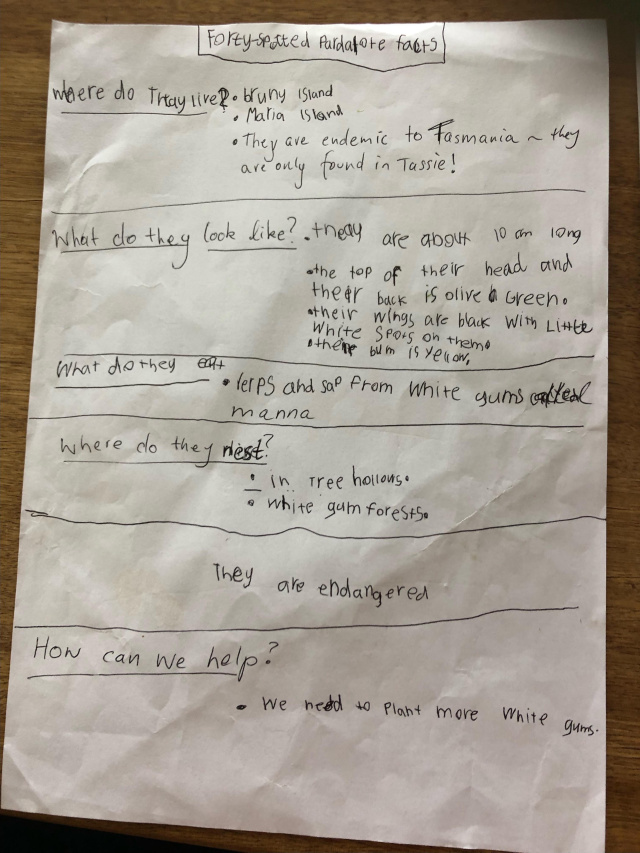 Forty-spotted Pardalote facts
where do Thay live?
• bruny Island
• Maria Island
• They are endemic to Tasmania ~ they
are only found in Tassie!
What do they look like?
• theay are about 10 cm long
• the top of their head and
their back is olive Green.
• their wings are black with Little
White spots on them.
• their bum is yellow.
What do they eat
• lerps and sap from white gums called
manna
Where do they nest?
• in Tree hollows.
• white gum forests.
They are endangered
How can we help?
• We need to plant more white gums.